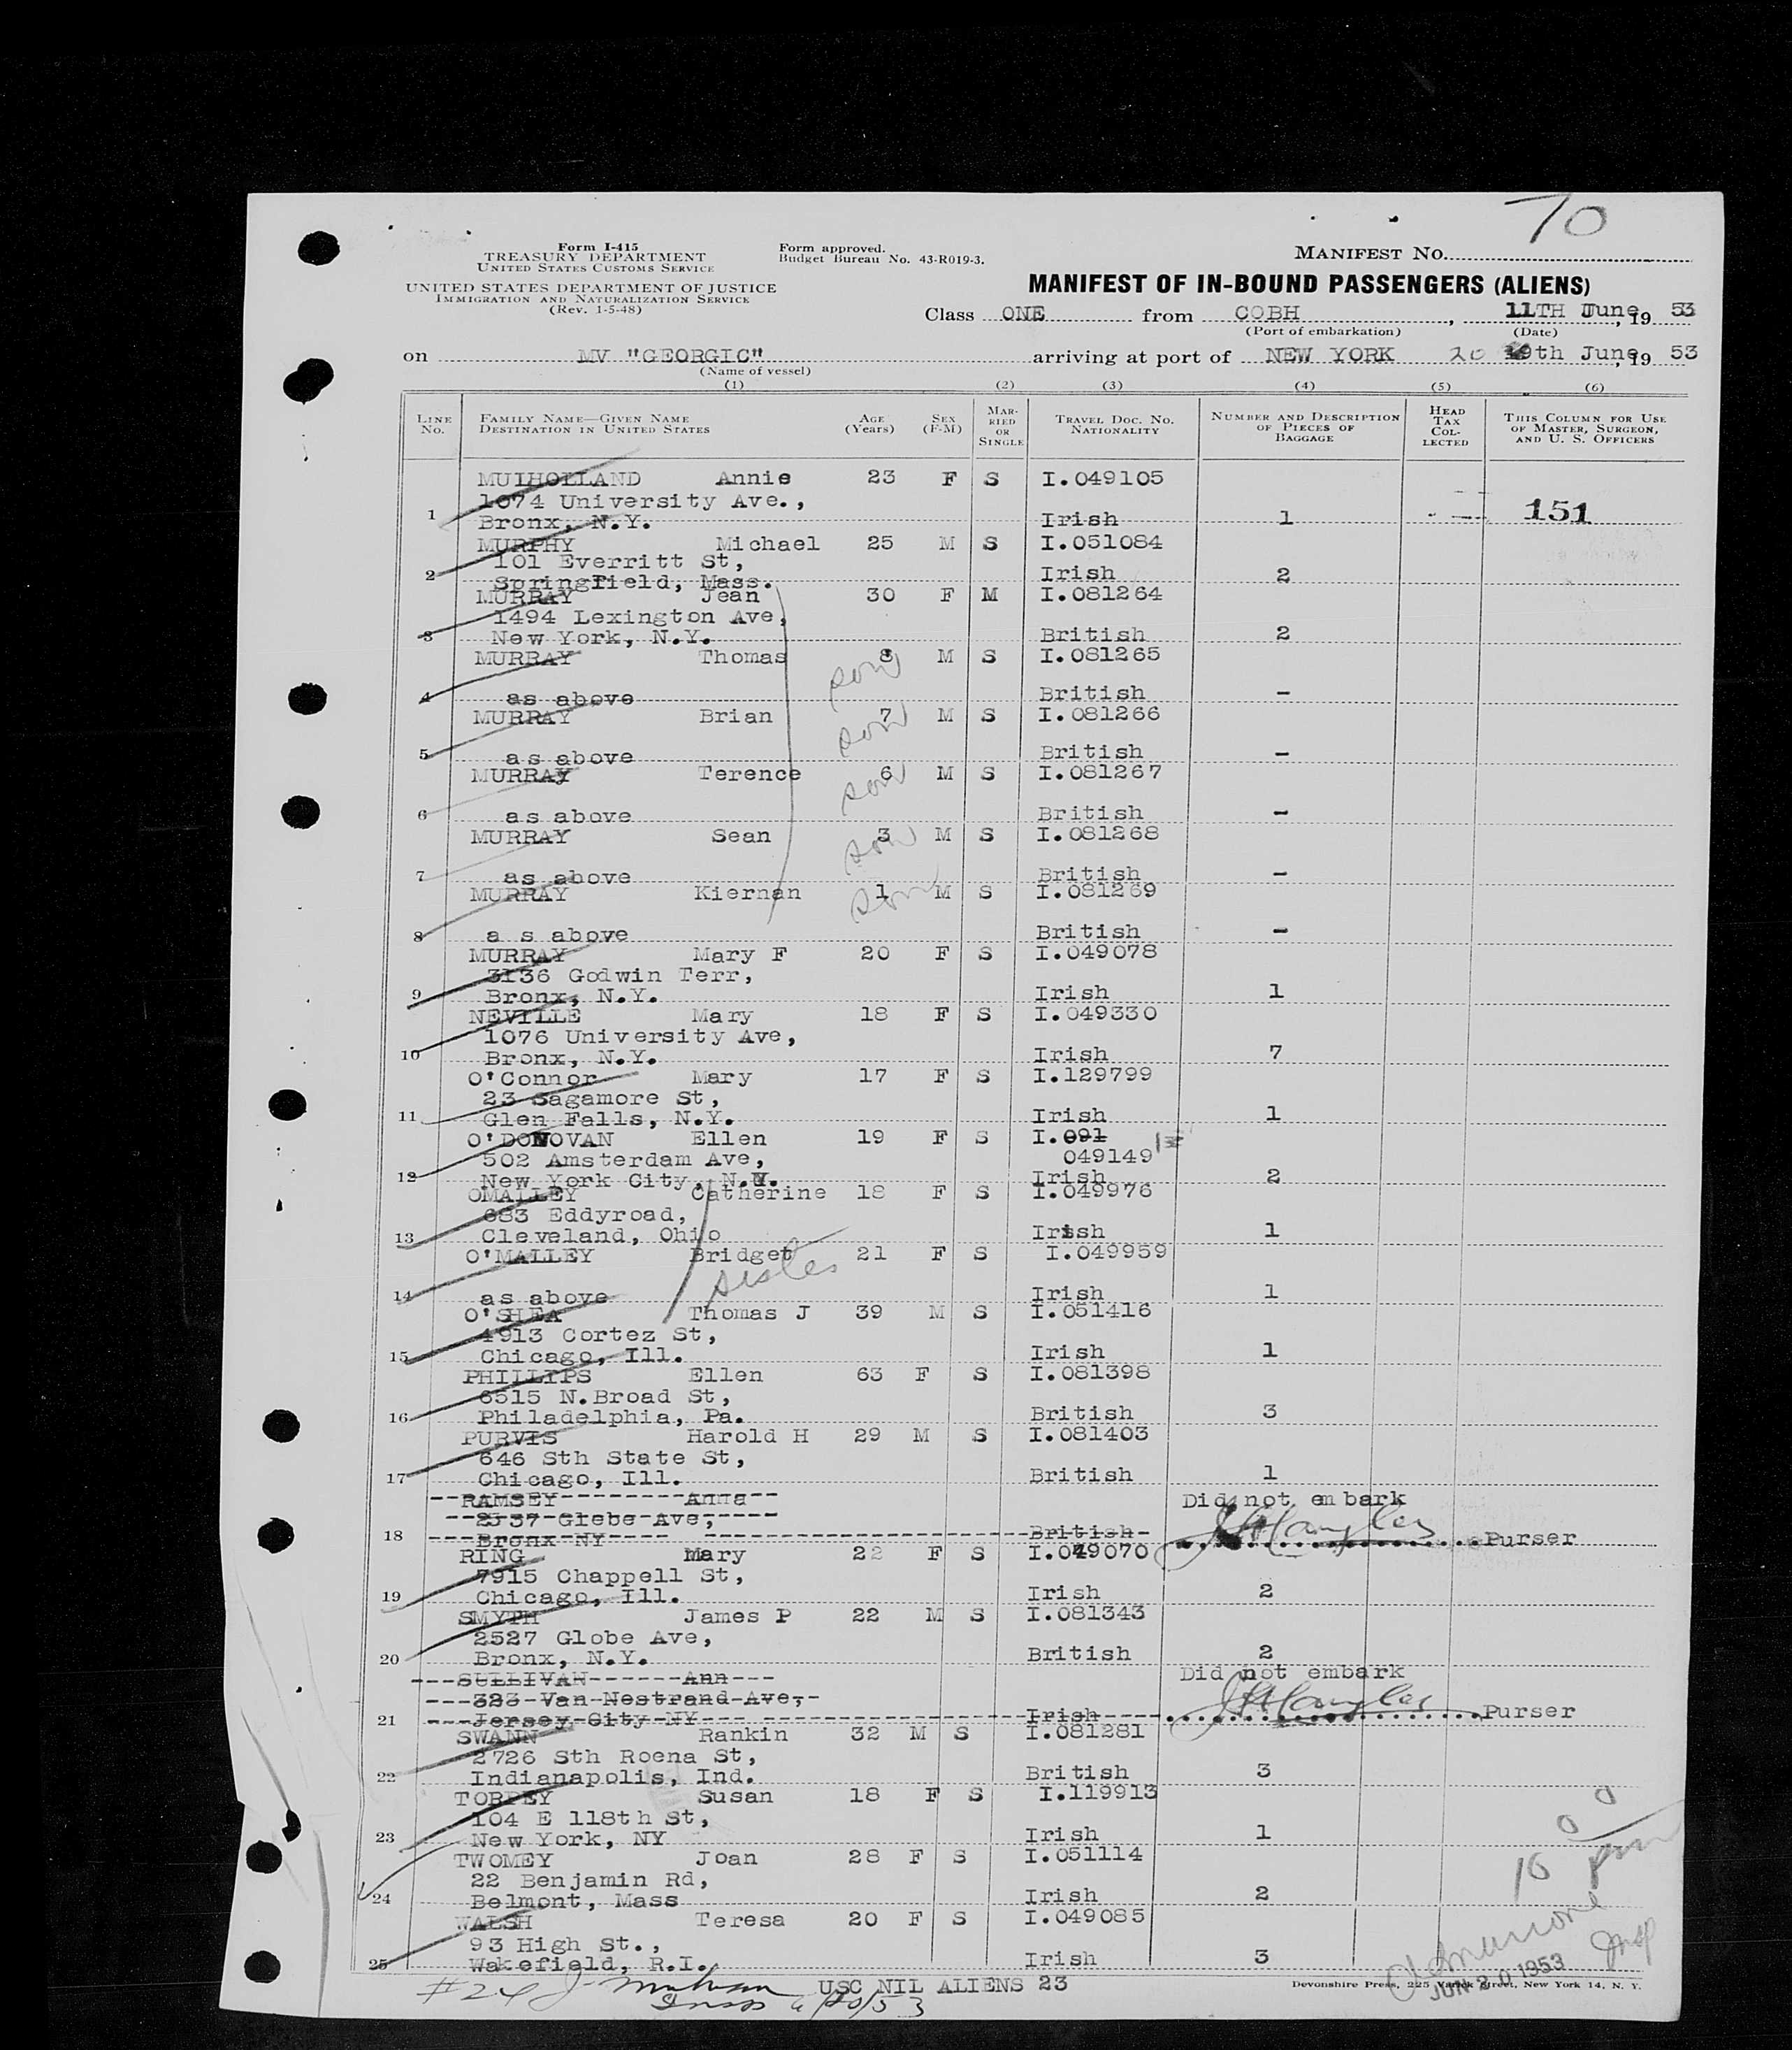 70
Form I-415
TREASURY DEPARTMENT
UNITED STATES CUSTOMS SERVICE
UNITED STATES DEPARTMENT OF JUSTICE
IMMIGRATION AND NATURALIZATION SERVICE
(Rev. 1-5-48)
Form approved.
Budget Bureau No. 43-R019-3.
MANIFEST No.
MANIFEST OF IN-BOUND PASSENGERS (ALIENS)
Class ONE from COBH, 11TH June, 19 53
(Port of embarkation) (Date)
on MV "GEORGIC" arriving at port of NEW YORK 20 19th June, 19 53
(Name of vessel)
(1) (2) (3) (4) (5) (6)
LINE No. FAMILY NAME—GIVEN NAME DESTINATION IN UNITED STATES AGE (Years) SEX (F-M) MARRIED OR SINGLE TRAVEL DOC. NO. NATIONALITY NUMBER AND DESCRIPTION OF PIECES OF BAGGAGE HEAD TAX COLLECTED THIS COLUMN FOR USE OF MASTER, SURGEON, AND U. S. OFFICERS
MULHOLLAND Annie 23 F S I.049105
1074 University Ave.,
1 Bronx, N.Y. Irish 1 151
MURPHY Michael 25 M S I.051084
101 Everritt St,
2 Springfield, Mass. Irish 2
MURRAY Jean 30 F M I.081264
1494 Lexington Ave,
3 New York, N.Y. British 2
MURRAY Thomas 8 M S I.081265
son
4 as above British -
MURRAY Brian 7 M S I.081266
son
5 as above British -
MURRAY Terence 6 M S I.081267
son
6 as above British -
MURRAY Sean 3 M S I.081268
son
7 as above British -
MURRAY Kiernan 1 M S I.081269
son
8 a s above British -
MURRAY Mary F 20 F S I.049078
3136 Godwin Terr,
9 Bronx, N.Y. Irish 1
NEVILLE Mary 18 F S I.049330
1076 University Ave,
10 Bronx, N.Y. Irish 7
O'Connor Mary 17 F S I.129799
23 Sagamore St,
11 Glen Falls, N.Y. Irish 1
O'DONOVAN Ellen 19 F S I.091
502 Amsterdam Ave, 049149
12 New York City, N.Y. Irish 2
OMALLEY Catherine 18 F S I.049976
683 Eddyroad,
13 Cleveland, Ohio Irish 1
O'MALLEY Bridget 21 F S I.049959
sister
14 as above Irish 1
O'SHEA Thomas J 39 M S I.051416
4913 Cortez St,
15 Chicago, Ill. Irish 1
PHILLIPS Ellen 63 F S I.081398
6515 N.Broad St,
16 Philadelphia, Pa. British 3
PURVIS Harold H 29 M S I.081403
646 Sth State St,
17 Chicago, Ill. British 1
RAMSEY Anna Did not embark
2537 Glebe Ave,
18 Bronx NY British Purser
RING Mary 22 F S I.049070
7915 Chappell St,
19 Chicago, Ill. Irish 2
SMYTH James P 22 M S I.081343
2527 Globe Ave,
20 Bronx, N.Y. British 2
SULLIVAN Ann Did not embark
323 Van Nestrand Ave,
21 Jersey City NY Irish Purser
SWANN Rankin 32 M S I.081281
2726 Sth Roena St,
22 Indianapolis, Ind. British 3
TORPEY Susan 18 F S I.119913
104 E 118th St,
23 New York, NY Irish 1
TWOMEY Joan 28 F S I.051114
22 Benjamin Rd,
24 Belmont, Mass Irish 2
WALSH Teresa 20 F S I.049085
93 High St.,
25 Wakefield, R.I. Irish 3
10 00 pm
Insp
JUN 20 1953
#24 USC NIL ALIENS 23
Insp 6/20/53
Devonshire Press, 225 Varick Street, New York 14, N. Y.